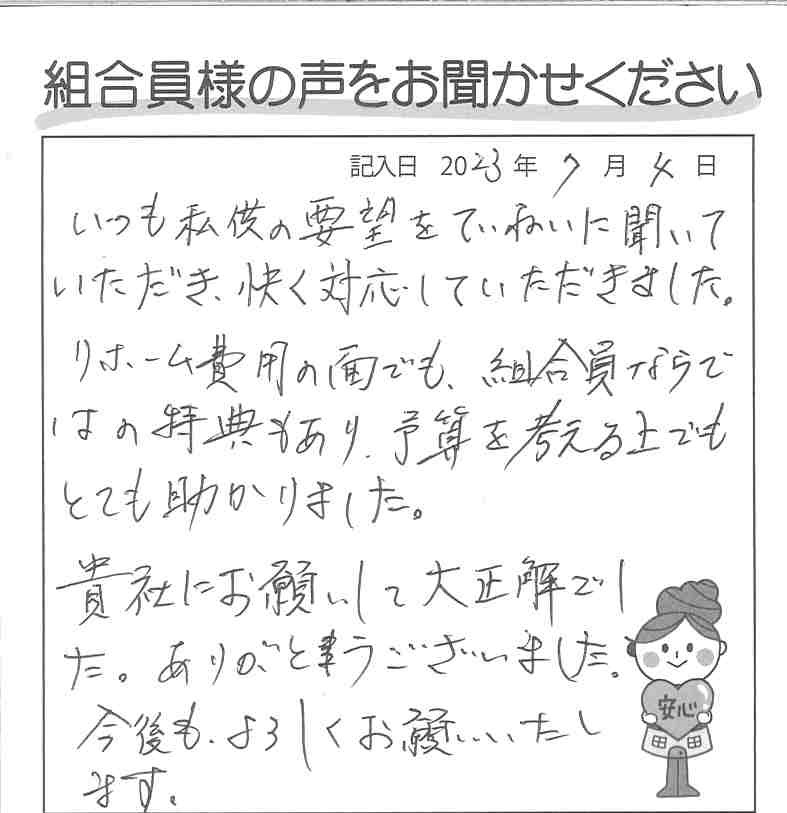 組合員様の声をお聞かせください
記入日 2023年 7月 4日
いつも私供の要望をていねいに聞いて
いただき、快く対応していただきました。
リホーム費用の面でも、組合員ならで
はの特典もあり、予算を考える上でも
とても助かりました。
貴社にお願いして大正解でし
た。ありがと事うございました。
今後も、よろしくお願いいたし
ます。
安心